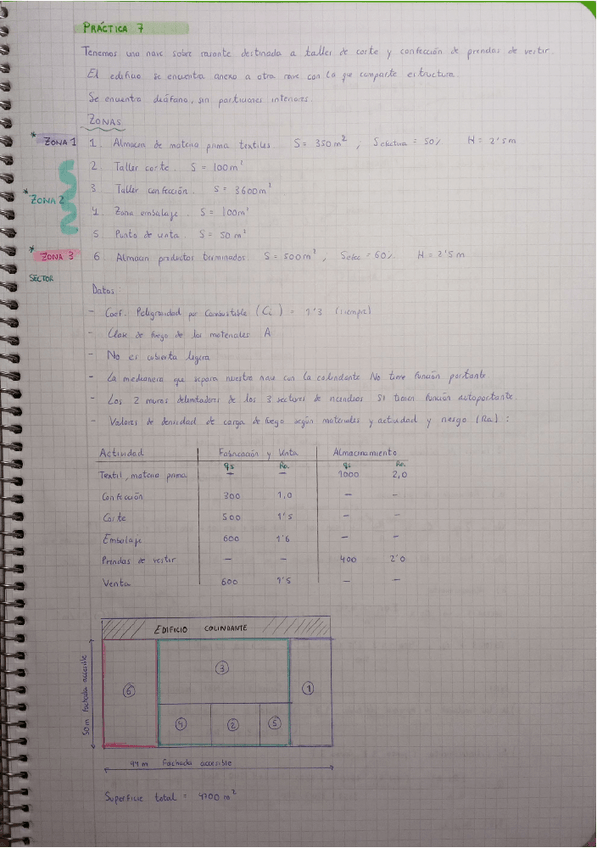 PRÁCTICA 7
Tenemos una nave sobre rasante destinada a taller de corte y confección de prendas de vestir.
El edificio se encuentra anexo a otra nave con la que comparte estructura.
Se encuentra diáfano, sin particiones interiores.
ZONAS
* ZONA 1 1. Almacén de materia prima textiles. S= 350 m², Sefectiva = 50% H= 2'5m
2. Taller corte. S = 100m²
3 Taller confección. S= 3600m²
* ZONA 2
4. Zona embalaje. S = 100m²
5. Punto de venta. S= 50 m²
* ZONA 3 6. Almacén productos terminados. S= 500m², Sefec.= 60% H = 2'5m
SECTOR
Datos
- Coef. Peligrosidad por Combustible (Ci) = 1'3 (siempre)
- Clase de fuego de los materiales A
- No es cubierta ligera
- La medianera que separa nuestra nave con la colindante No tiene función portante.
- Los 2 muros delimitadores de los 3 sectores de incendios SI tienen función autoportante.
- Valores de densidad de carga de fuego según materiales y actividad y riesgo (Ra) :
Actividad Fabricación y Venta Almacenamiento
qs Ra qs Ra
Textil, materia prima. — — 1000 2,0
Confección 300 1,0 — —
Corte 500 1'5 — —
Embalaje 600 1'6 — —
Prendas de vestir — — 400 2'0
Venta 600 1'5 — —
EDIFICIO COLINDANTE
3
6 1
4 2 5
50m fachada accesible
94 m Fachada accesible
Superficie total = 4700 m²